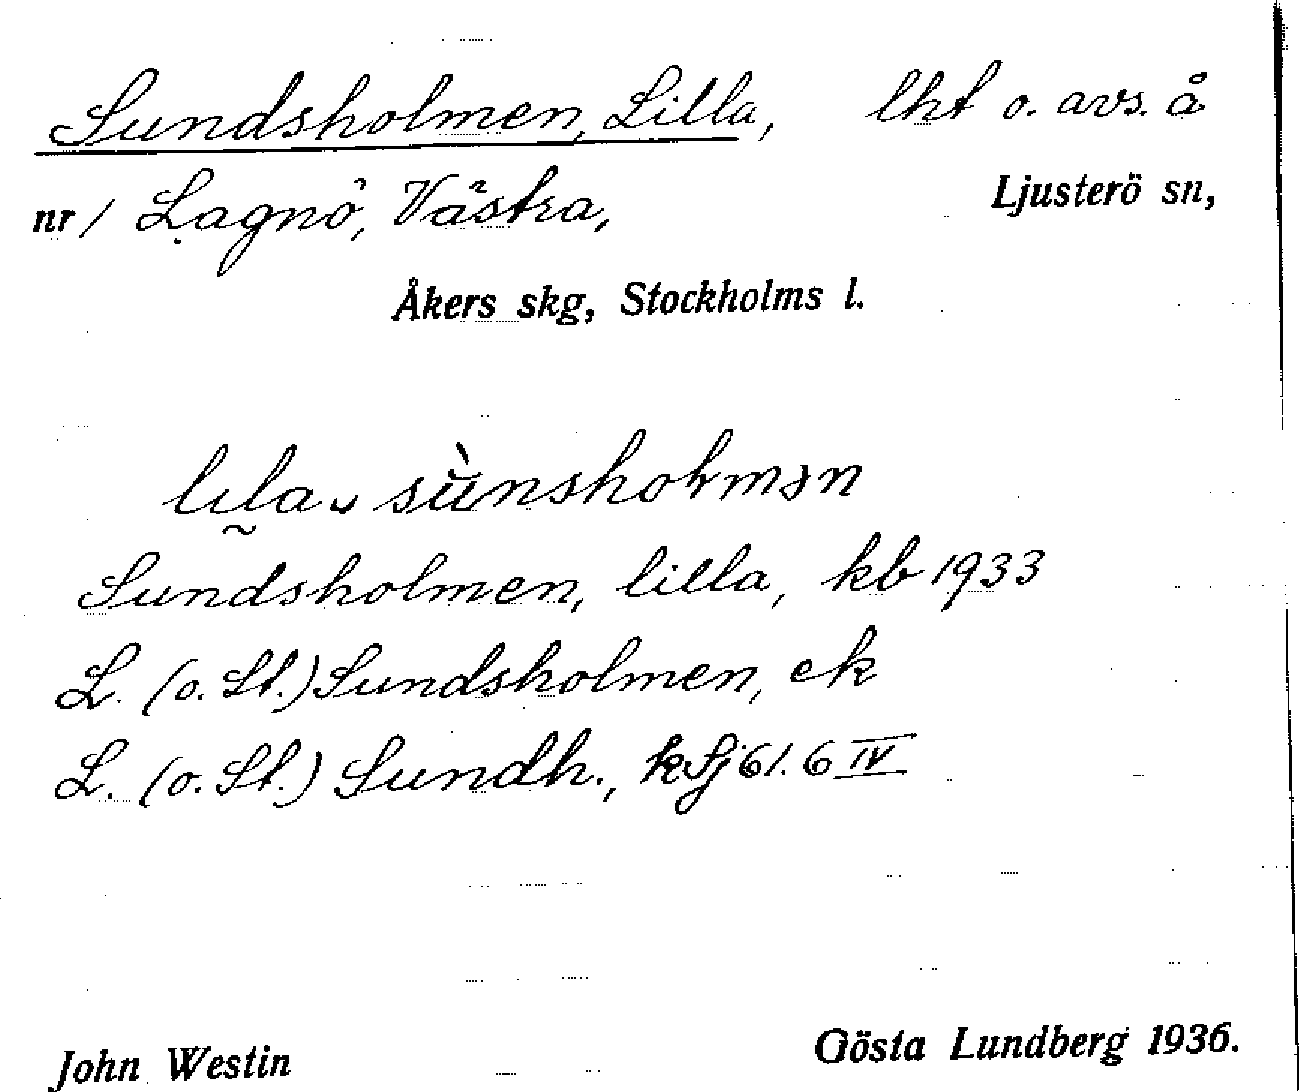 Sundsholmen, Lilla, lht o. avs. å
nr / Lagnö, Västra, Ljusterö sn,
Åkers skg, Stockholms l.
lıla sùnsholmən
Sundsholmen, lilla, kb 1933
L. (o. St.) Sundsholmen, ek
L. (o. St.) Sundh., kSj 61. 6 IV
John Westin Gösta Lundberg 1936.